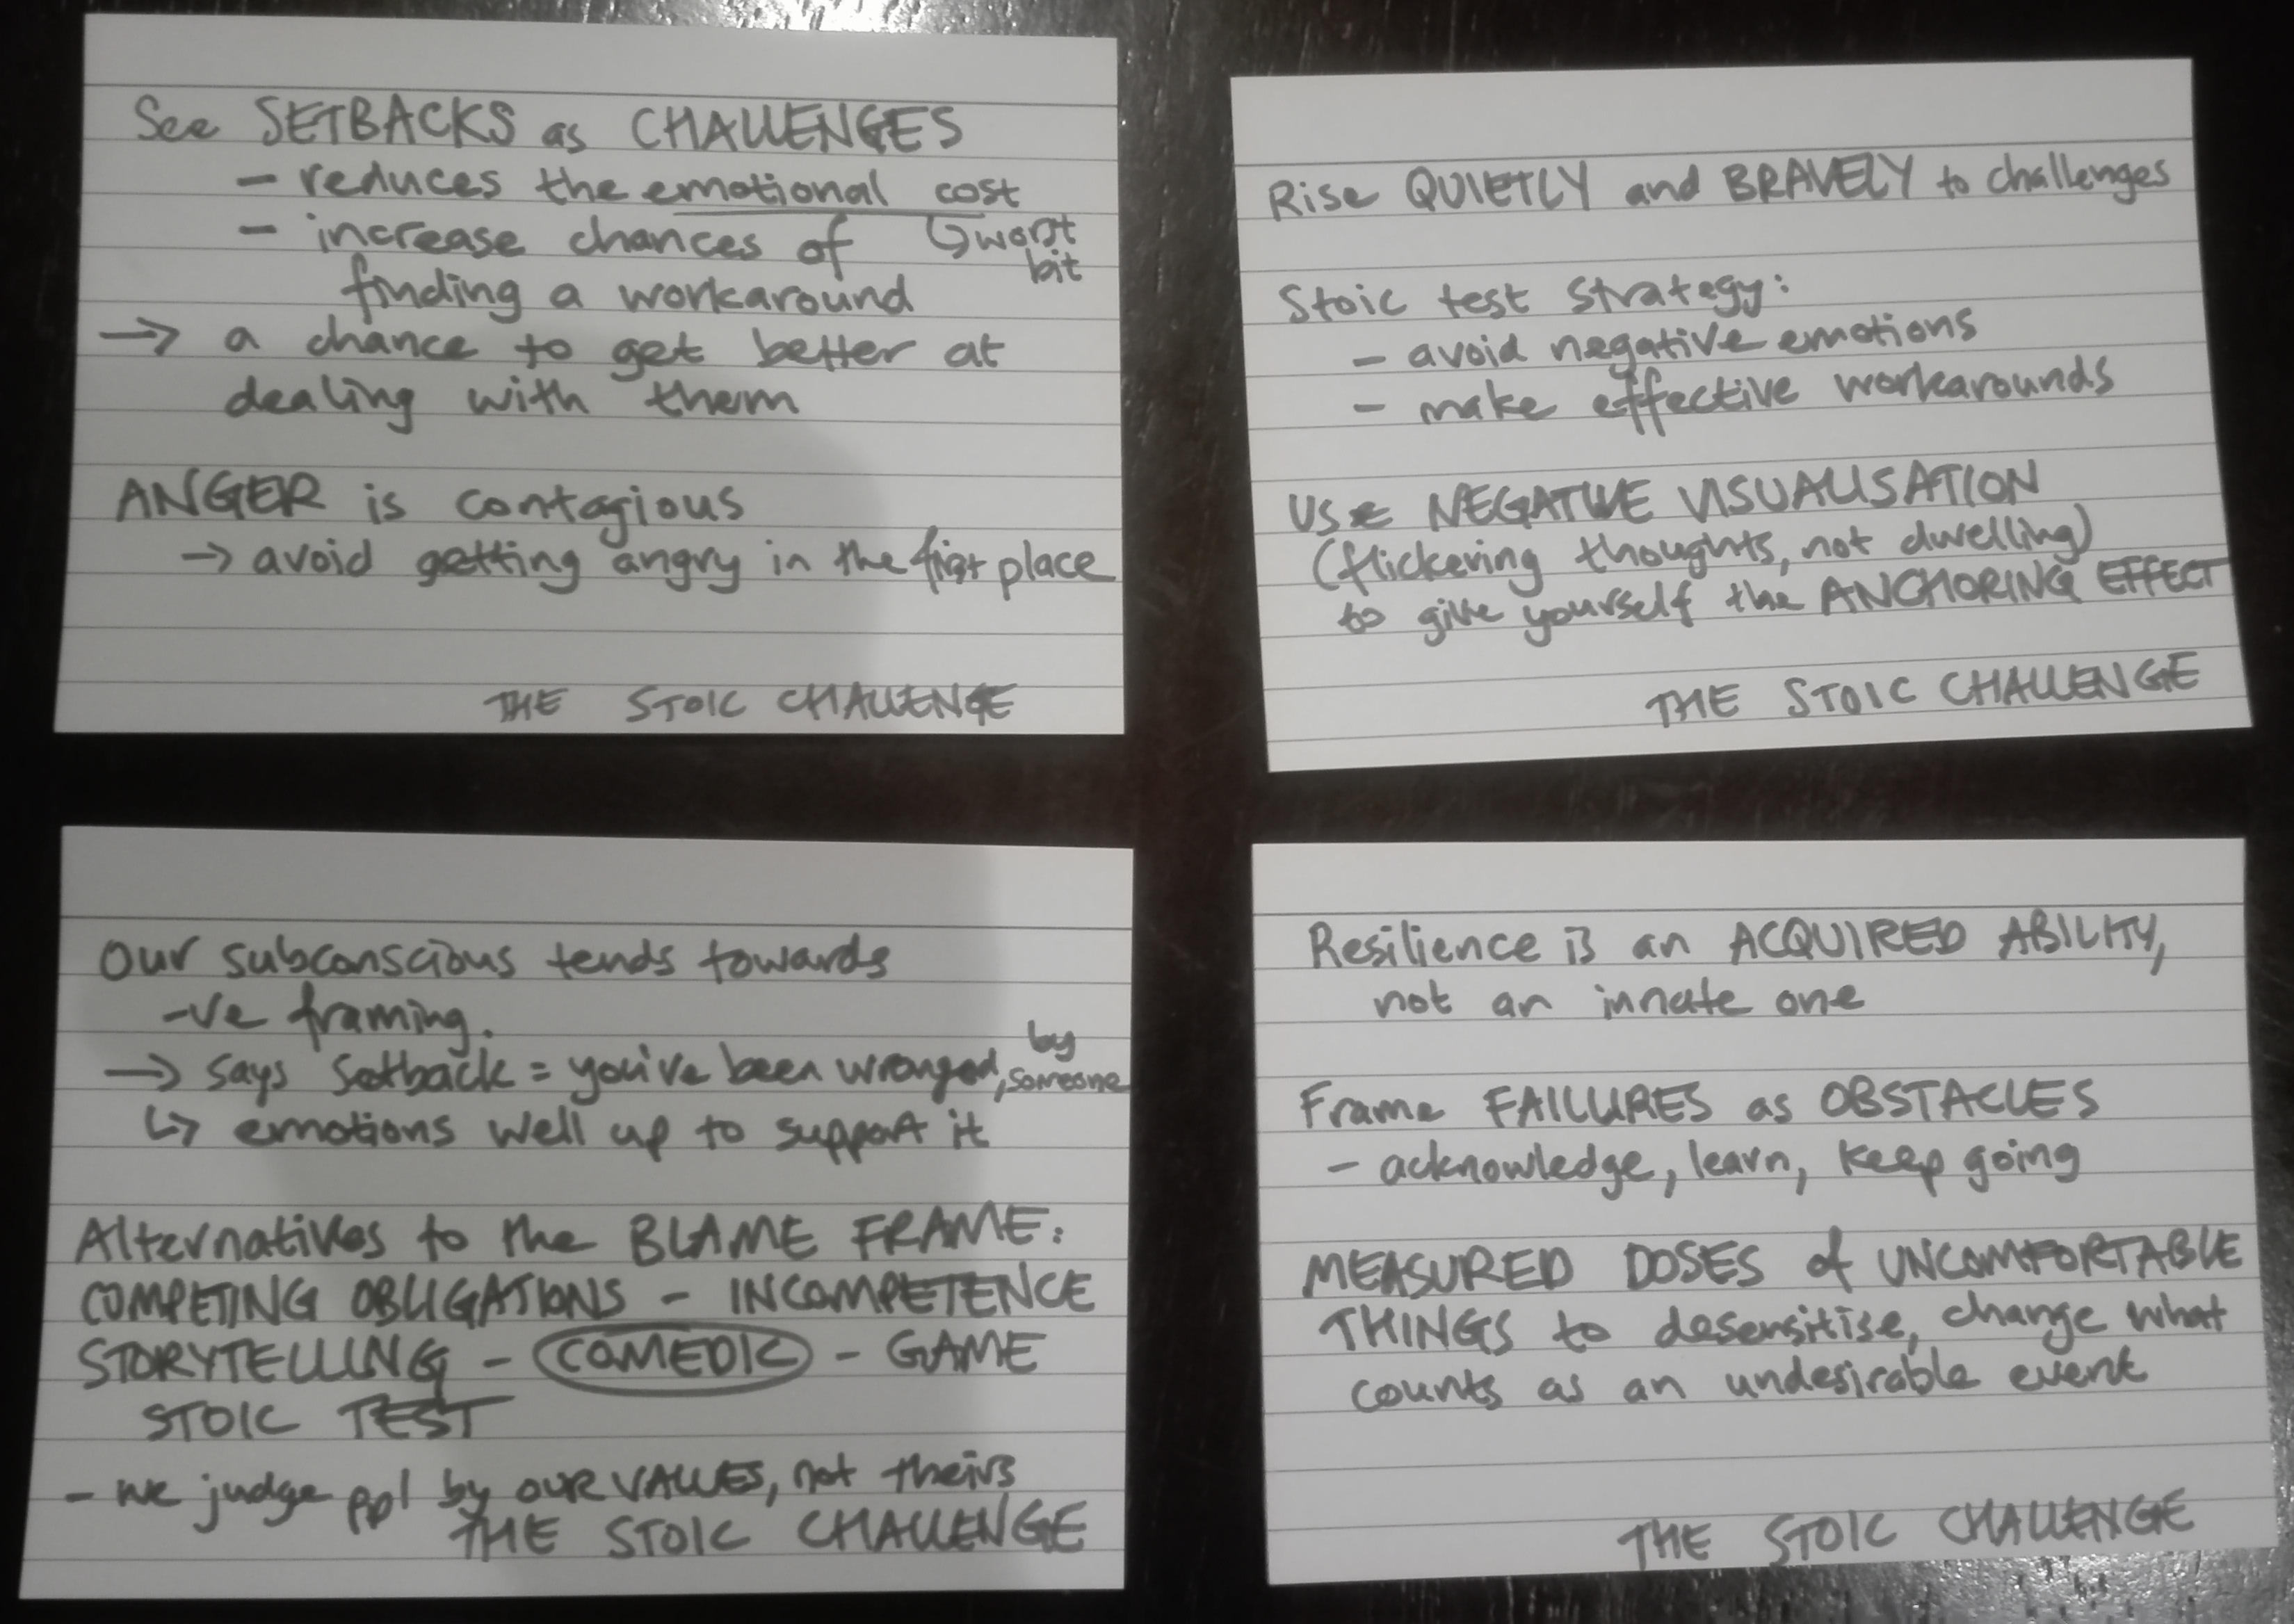 See SETBACKS as CHALLENGES
- reduces the emotional cost
↳ worst
bit
- increase chances of
finding a workaround
→ a chance to get better at
dealing with them
ANGER is contagious
→ avoid getting angry in the first place
THE STOIC CHALLENGE
Rise QUIETLY and BRAVELY to challenges
Stoic test strategy:
- avoid negative emotions
- make effective workarounds
Use NEGATIVE VISUALISATION
(flickering thoughts, not dwelling)
to give yourself the ANCHORING EFFECT
THE STOIC CHALLENGE
Our subconscious tends towards
-ve framing.
→ says setback = you've been wronged, by someone
↳ emotions well up to support it
Alternatives to the BLAME FRAME:
COMPETING OBLIGATIONS - INCOMPETENCE
STORYTELLING - COMEDIC - GAME
STOIC TEST
- we judge ppl by OUR VALUES, not theirs
THE STOIC CHALLENGE
Resilience is an ACQUIRED ABILITY,
not an innate one
Frame FAILURES as OBSTACLES
- acknowledge, learn, keep going
MEASURED DOSES of UNCOMFORTABLE
THINGS to desensitise, change what
counts as an undesirable event
THE STOIC CHALLENGE